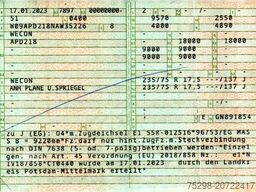 17.01.2023 7897 00000000-
2 - - / -
51 0400
9570 2550
W09APD218NAW35226 8
4000 4890
WECON
APD218
18000 18000
9000 9000
9000 9000
WECON
235/75 R 17.5 --/137 J
ANH PLANE U.SPRIEGEL
235/75 R 17.5 --/137 J
E GN891854
zu J (EG): O4*m.Zugdeichsel E1 55R-012516*96753/EG MAS
S B = 9220mm*Fz.darf nur hint.zugFz.m.Steckverbindung
nach DIN 7638 (5- od. 7-polig)betrieben werden*Einzel
gen. nach Art. 45 Verordung (EU) 2018/858 Nr.: e1*N
IV18/858*CT0440 wurde am 17.01.2023 durch den Landkre
is Potsdam-Mittelmark erteilt*
75298-20722417